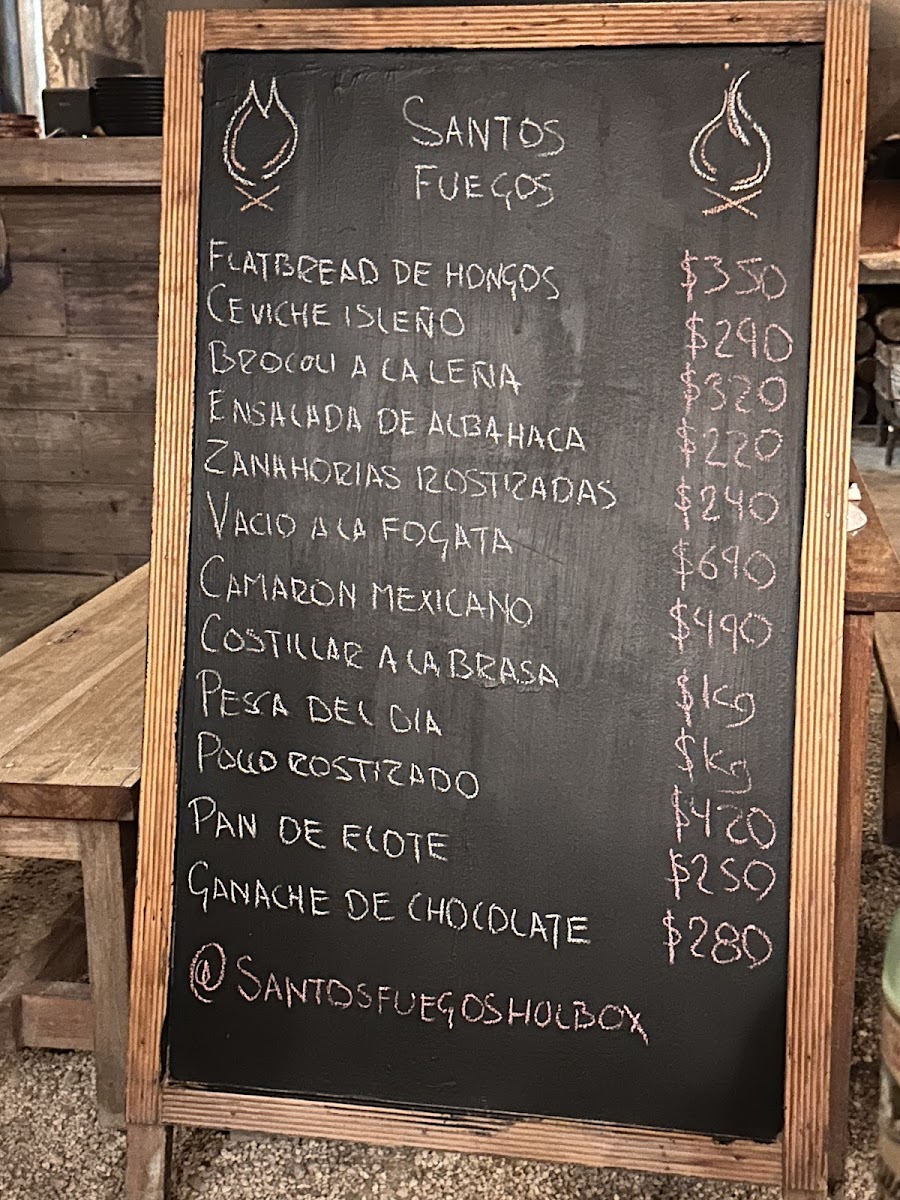 SANTOS
FUEGOS
FLATBREAD DE HONGOS $350
CEVICHE ISLEÑO $290
BROCOLI A LA LEÑA $320
ENSALADA DE ALBAHACA $220
ZANAHORIAS ROSTIZADAS $240
VACIO A LA FOGATA $690
CAMARON MEXICANO $490
COSTILLAR A LA BRASA $kg
PESCA DEL DIA $kg
POLLO ROSTIZADO $420
PAN DE ELOTE $250
GANACHE DE CHOCOLATE $280
@SANTOSFUEGOSHOLBOX